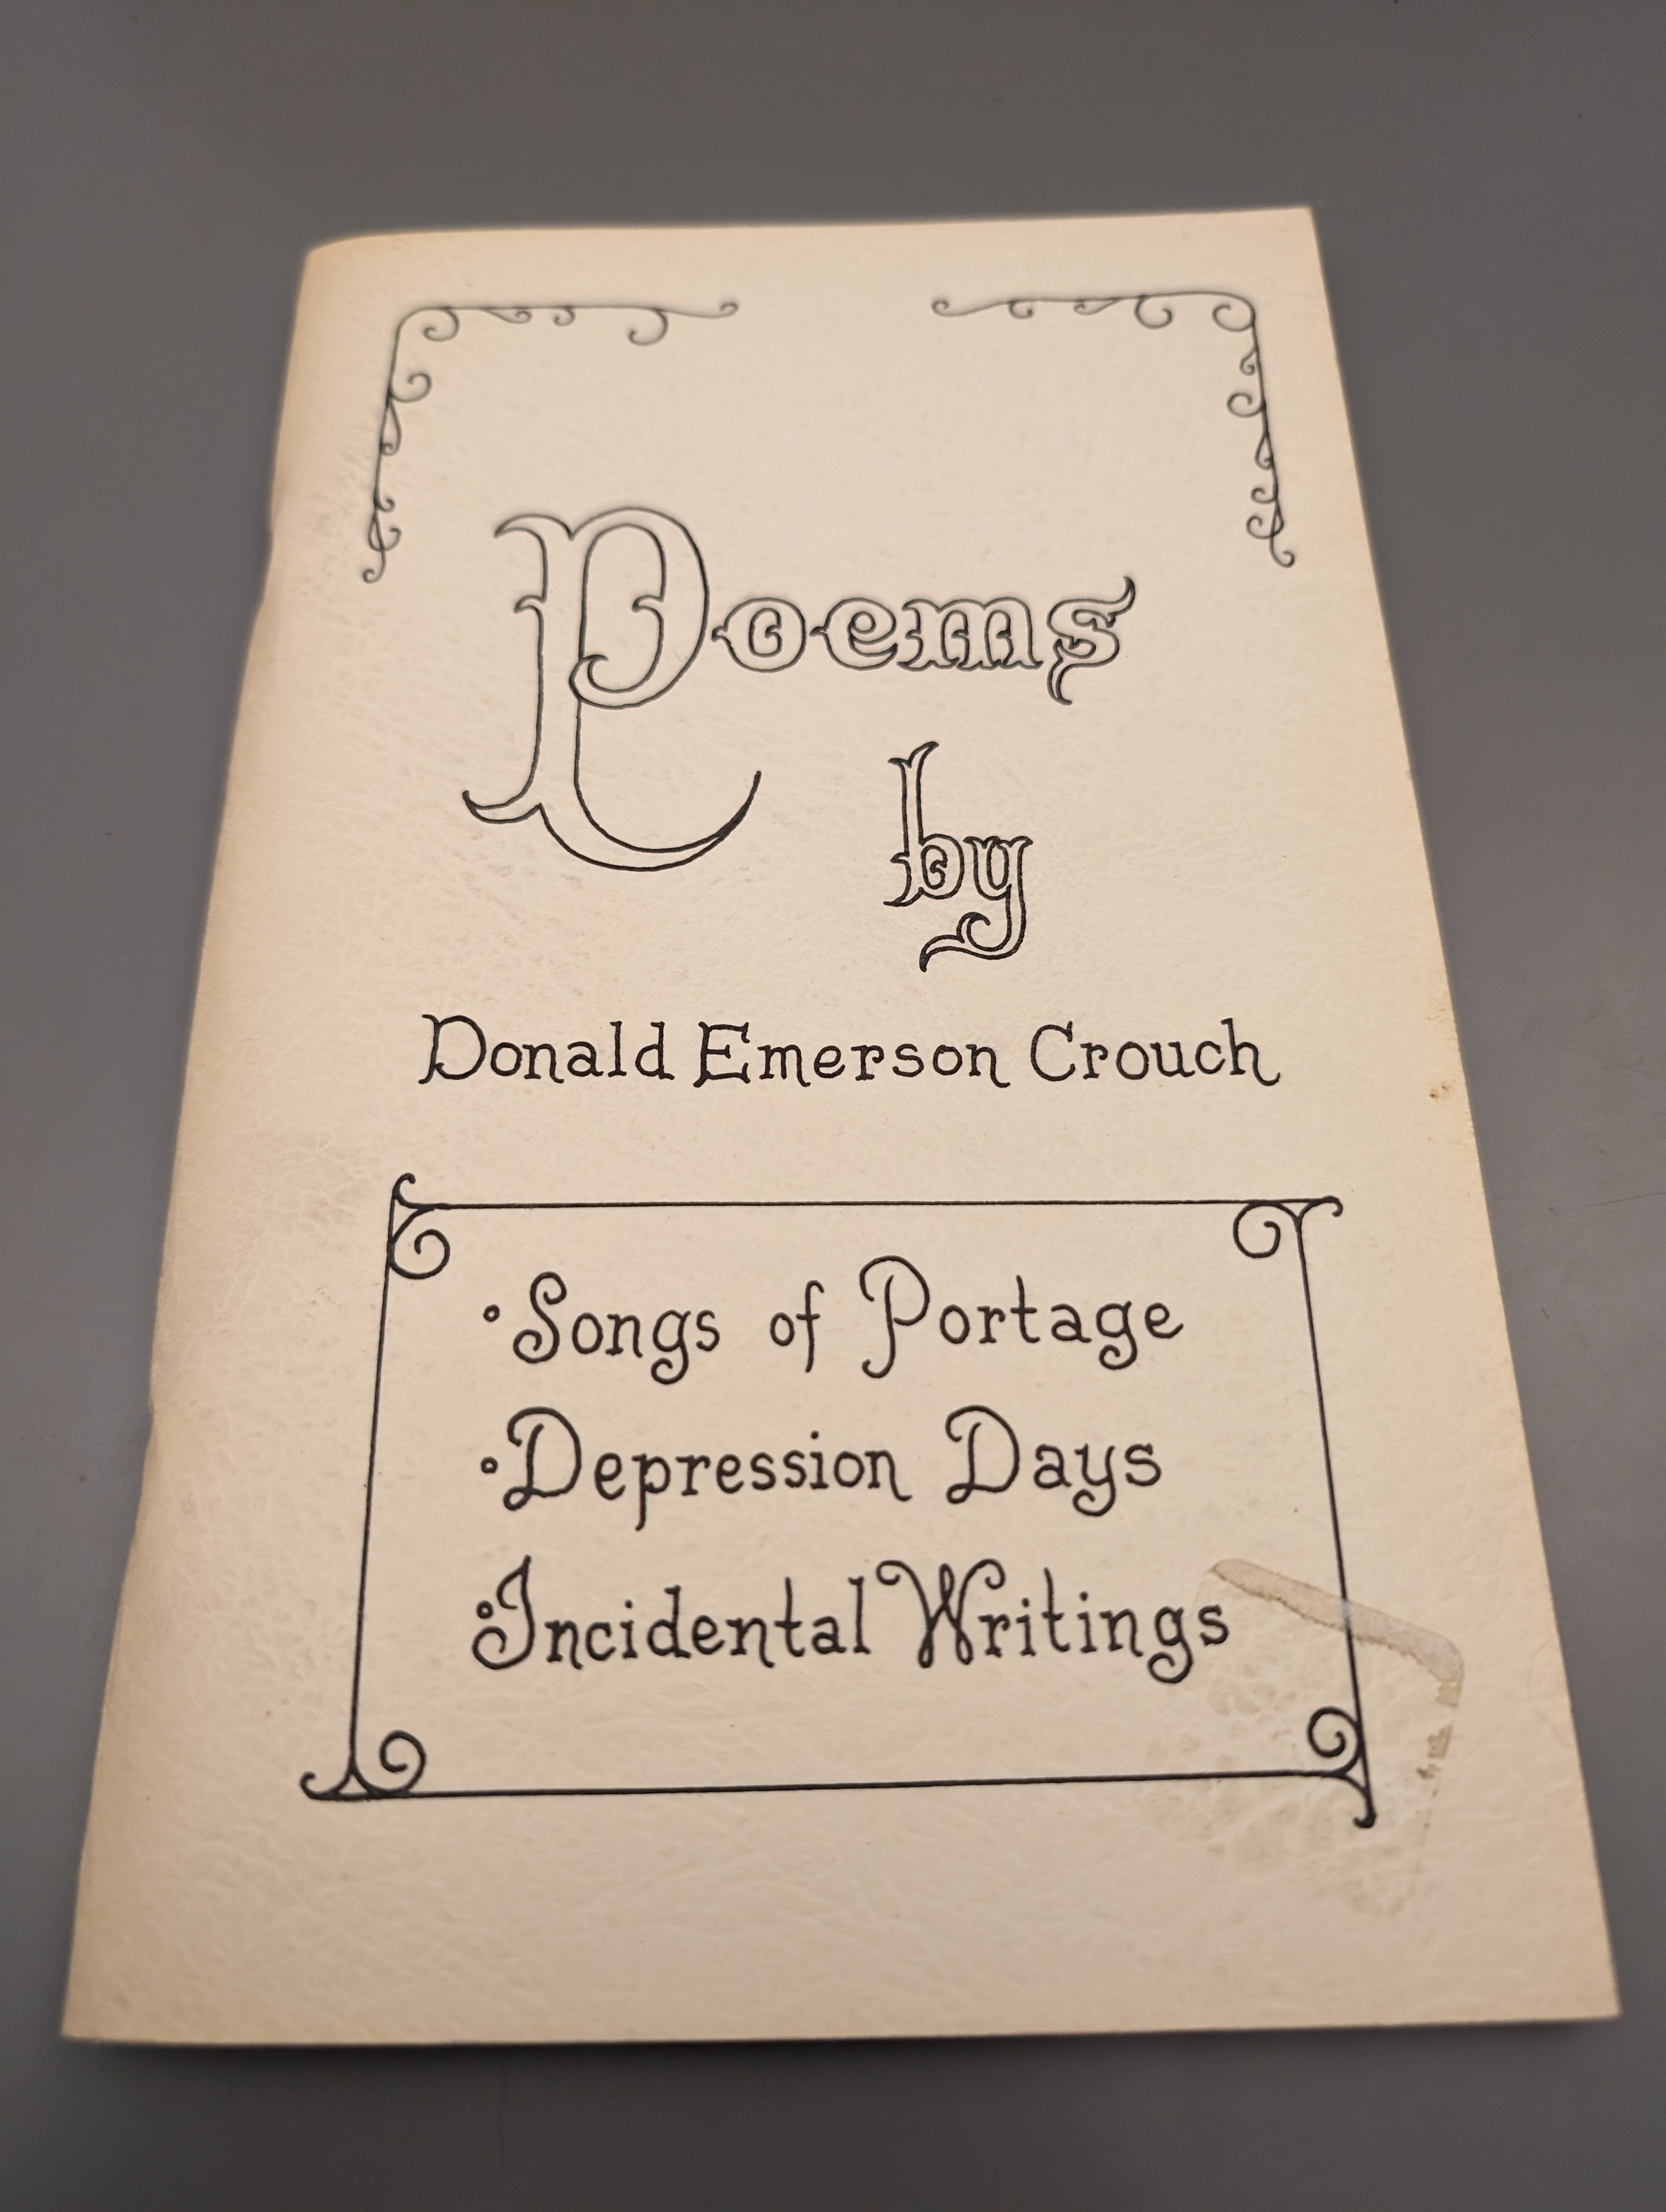 Poems
by
Donald Emerson Crouch
• Songs of Portage
• Depression Days
• Incidental Writings